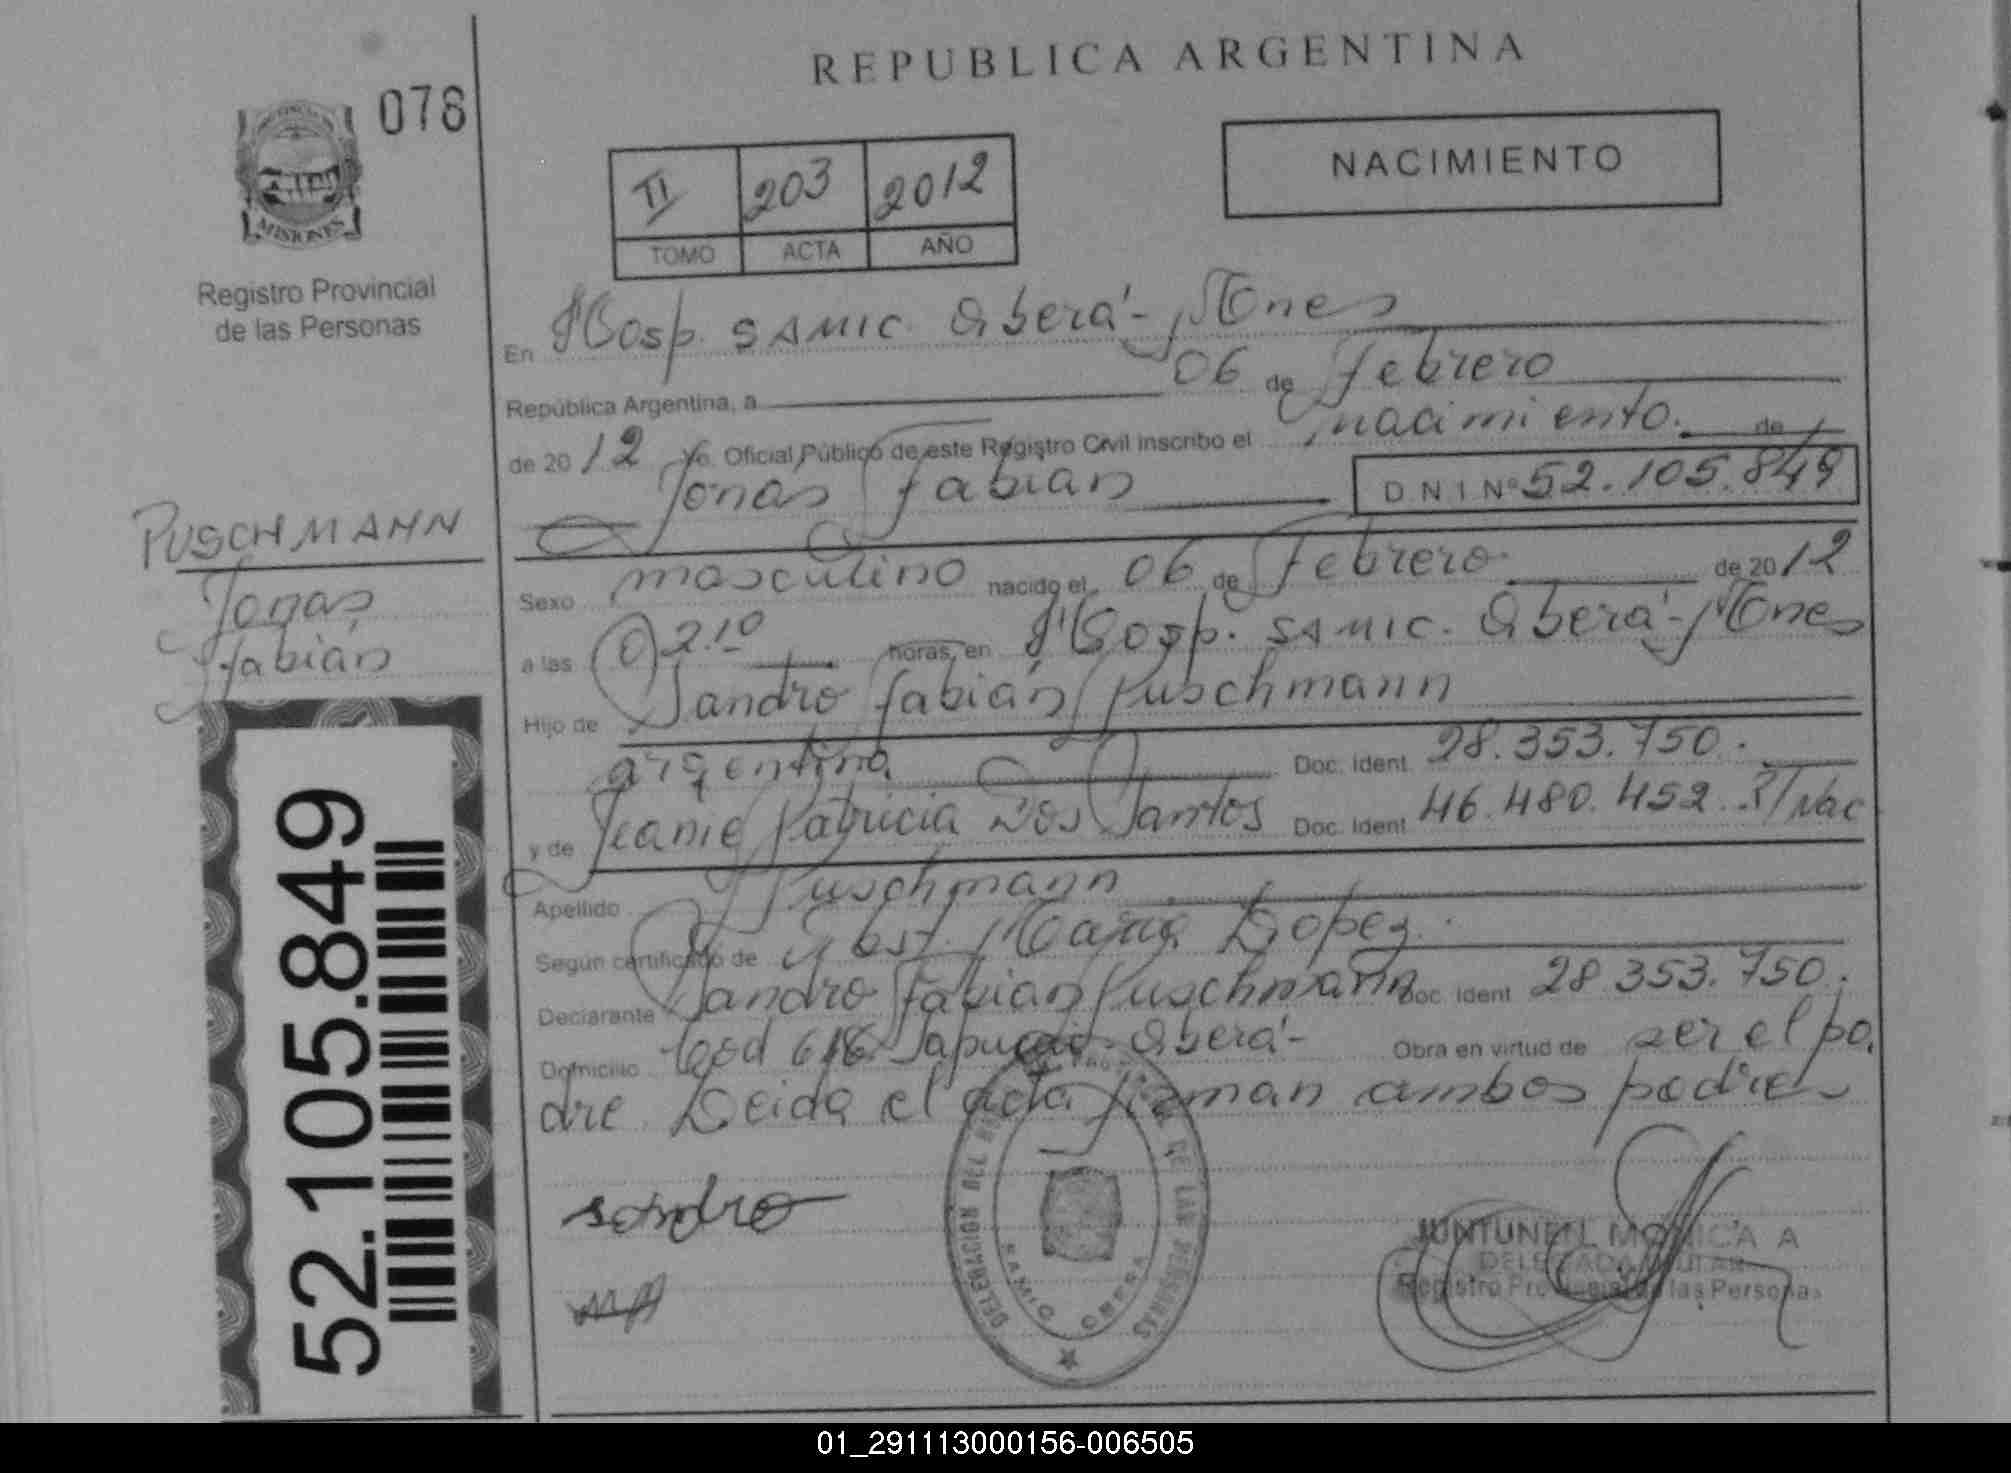 REPUBLICA ARGENTINA
078
MISIONES
Registro Provincial
de las Personas
II 203 2012
TOMO ACTA AÑO
NACIMIENTO
En Hosp. SAMIC. Oberá - Mnes
República Argentina, a 06 de Febrero
de 2012 Yo. Oficial Público de este Registro Civil inscribo el nacimiento. de
Jonas Fabian DNI Nº 52.105.849
PUSCHMANN
Jonas
Fabián
Sexo masculino nacido el 06 de Febrero de 2012
a las 02.10 horas, en Hosp. SAMIC. Oberá - Mnes
Hijo de Sandro Fabián Puschmann
argentina Doc. Ident. 28.353.750.
y de Patricia Dos Santos Doc. Ident 46.480.452. S/Nac
Apellido Puschmann
Según certificado de Obst. Maria Lopez.
Declarante Sandro Fabian Puschmann Doc. Ident 28.353.750.
Domicilio 616 Sapucai - Oberá - Obra en virtud de ser el pa
dre. Leida el acta firman ambos padres
52.105.849
sandro
DE LAS PERSONAS
SAMIC OBERA
JUNTUNEN MONICA A
DELEGADA TITULAR
Registro Provincial de las Personas
01_291113000156-006505